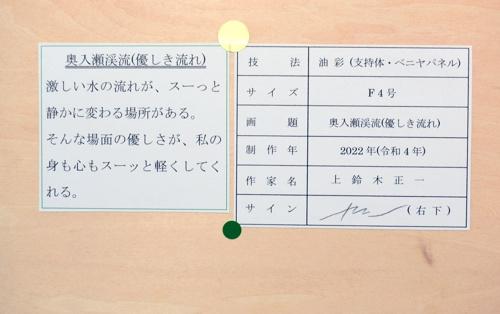 奥入瀬渓流(優しき流れ)
激しい水の流れが、スーっと
静かに変わる場所がある。
そんな場面の優しさが、私の
身も心もスーッと軽くしてく
れる。
技法 油彩(支持体・ベニヤパネル)
サイズ F4号
画題 奥入瀬渓流(優しき流れ)
制作年 2022年(令和4年)
作家名 上鈴木正一
サイン (右下)